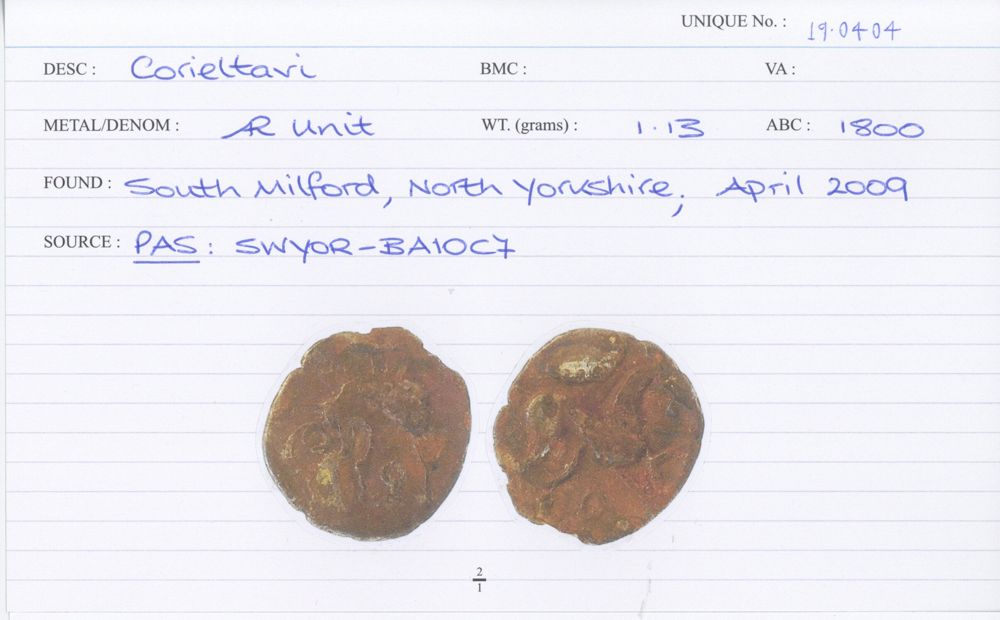 UNIQUE No. : 19.0404
DESC : Corieltavi BMC : VA :
METAL/DENOM : AR Unit WT. (grams) : 1.13 ABC : 1800
FOUND : South Milford, North Yorkshire; April 2009
SOURCE : PAS: SWYOR-BA10C7
2
1